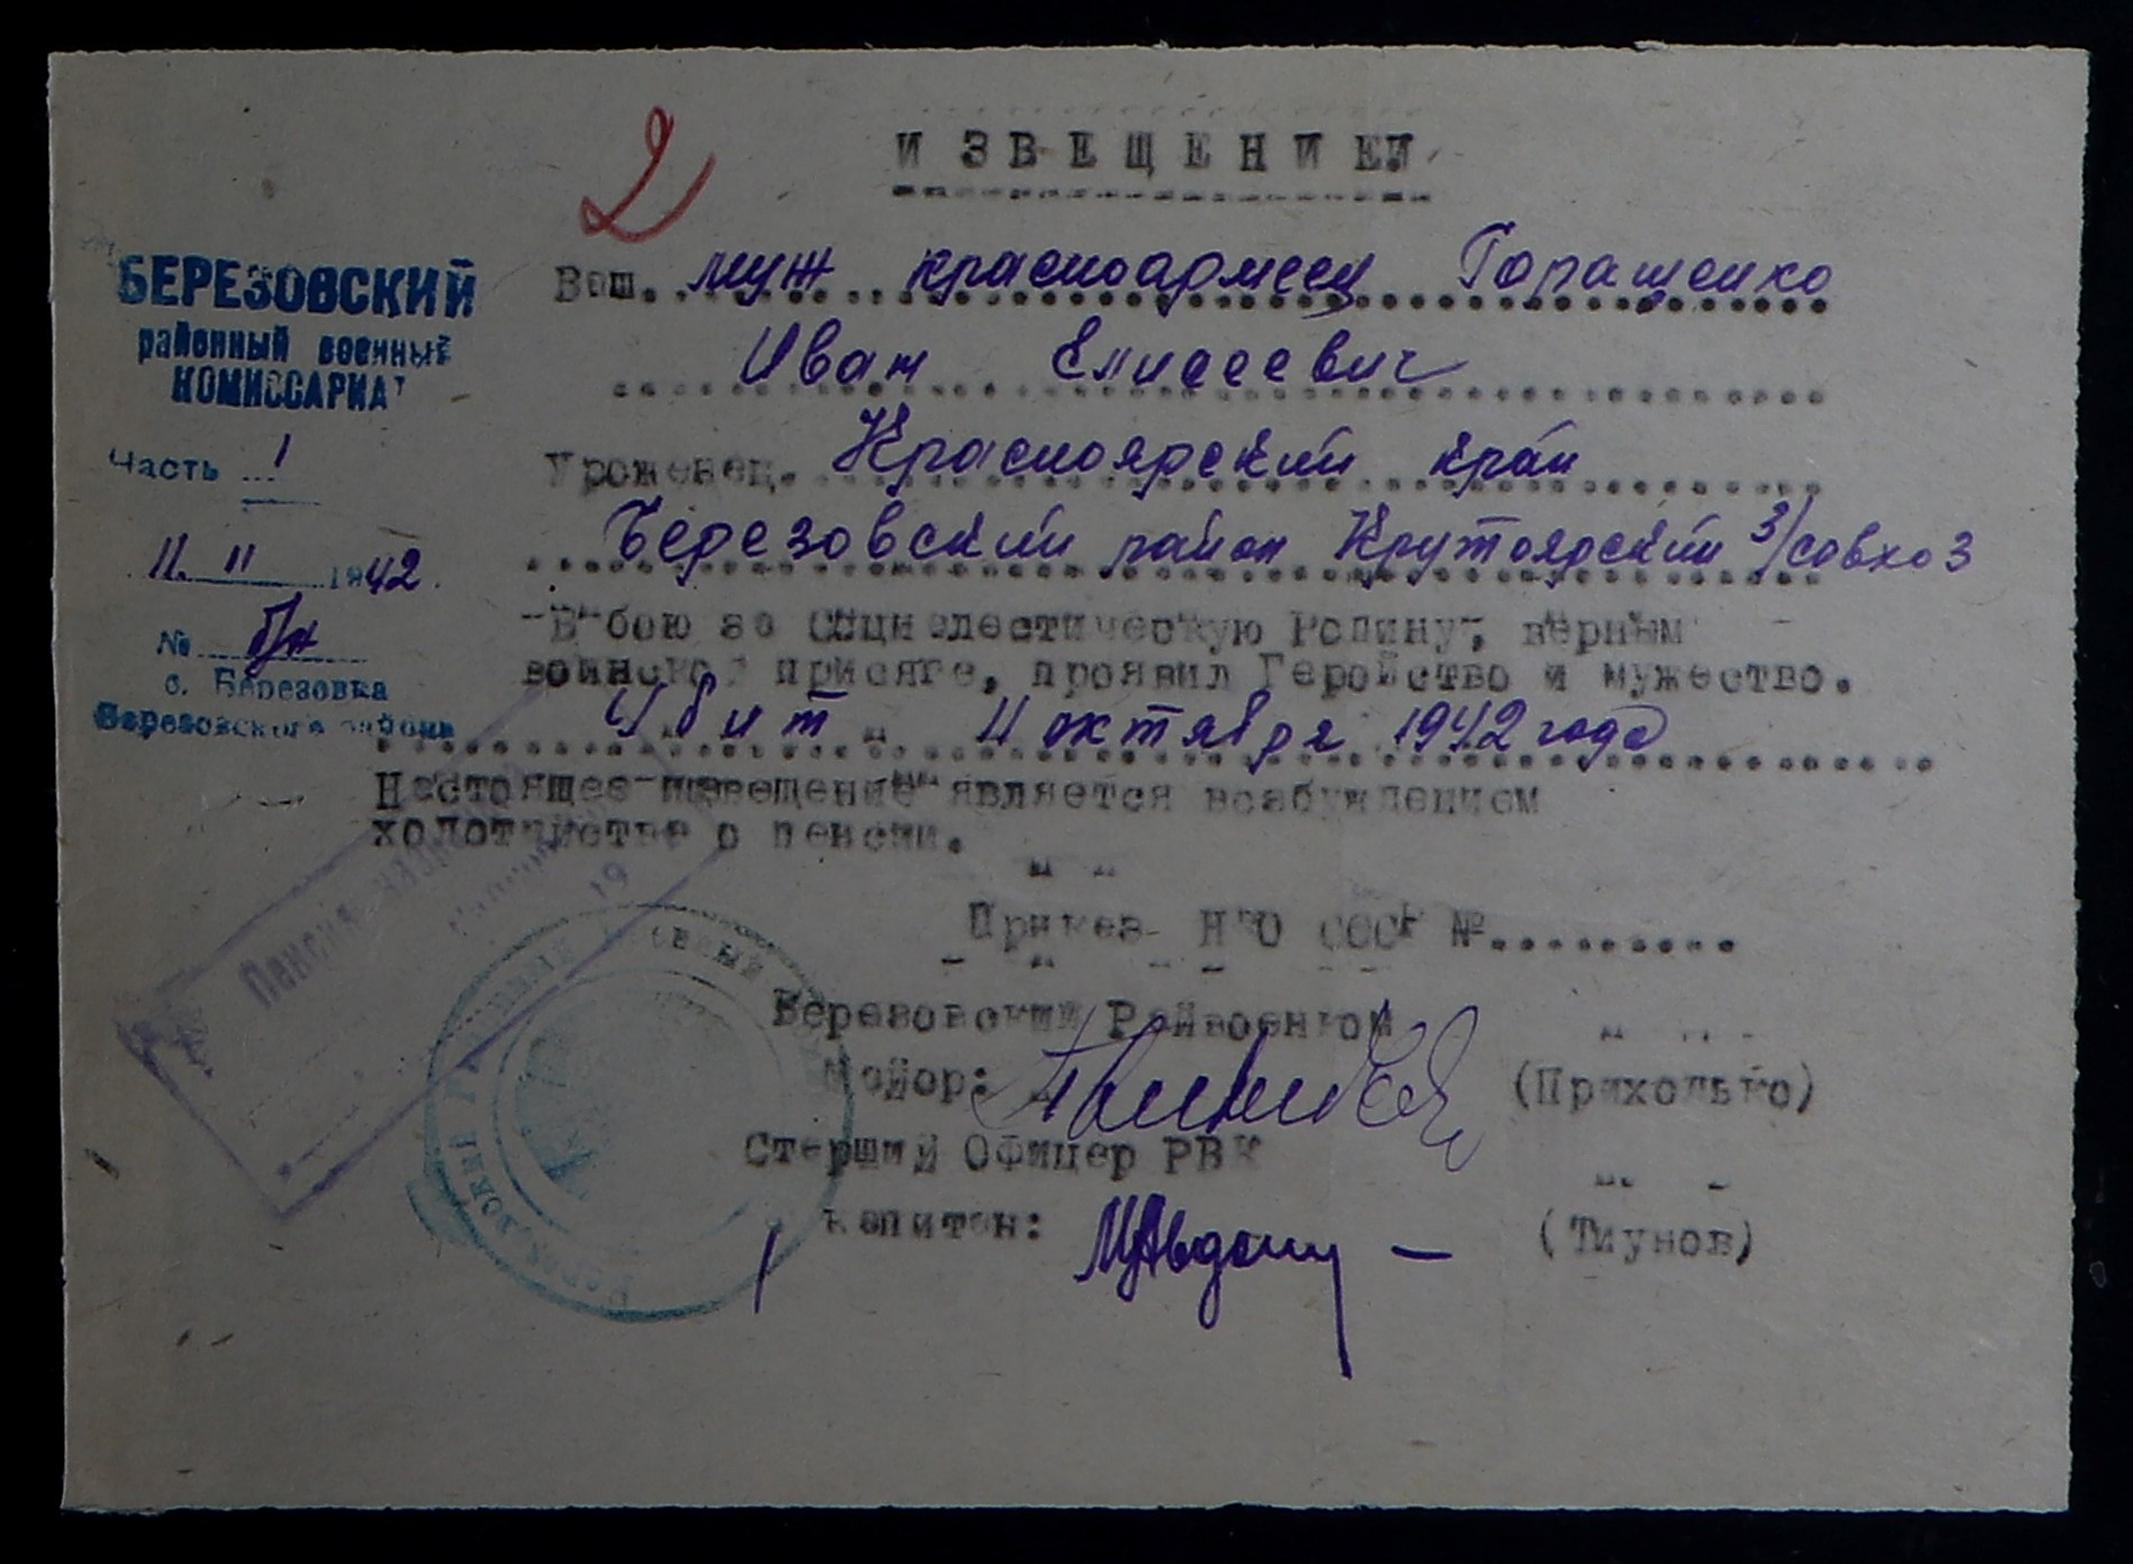 2
ИЗВЕЩЕНИЕ
БЕРЕЗОВСКИЙ
районный военный
КОМИССАРИАТ
Часть 1
11. 11 1942.
№ б/н
с. Березовка
Березовского района
Ваш. муж красноармеец Горащенко
Иван Елисеевич
Уроженец. Красноярский край
Березовский район Крутоярский з/совхоз
В бою за Социалистическую Родину, верным
воинской присяге, проявил Геройство и мужество.
Убит 4 октября 1942 года
Настоящее извещение является возбуждением
ходотайства о пенсии.
Приказ НКО СССР №..........
Березовский Райвоенком
Майор: (Прихолько)
Старший Офицер РВК
Капитан: (Тиунов)
Пенсия
19